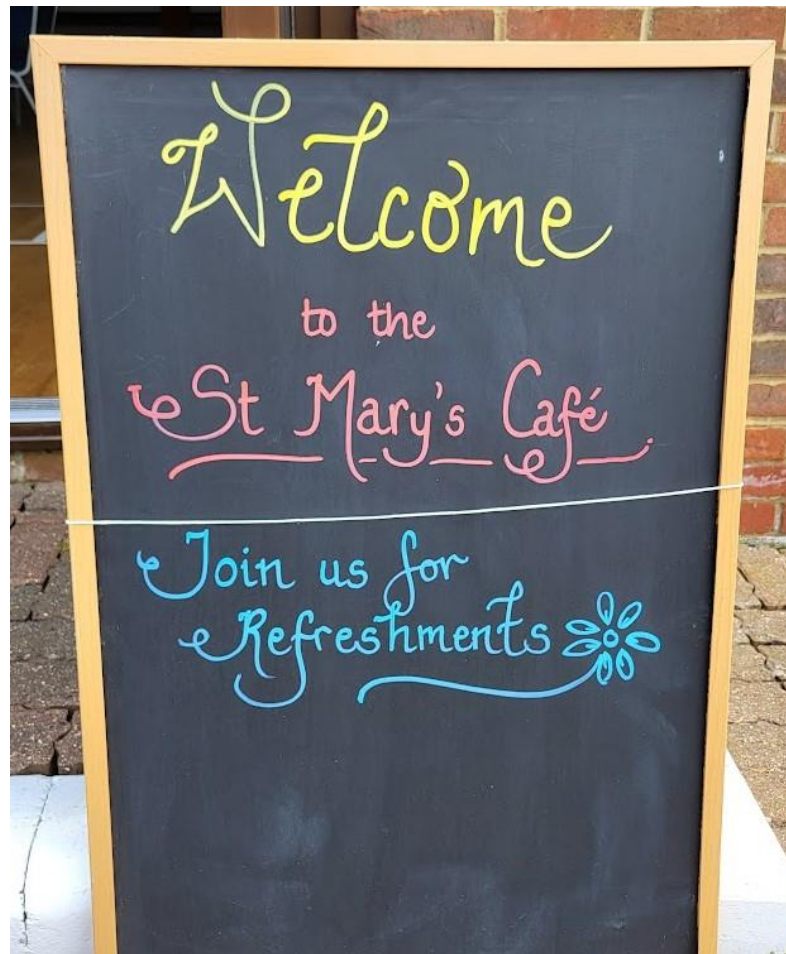 Welcome
to the
St Mary's Café
Join us for
Refreshments